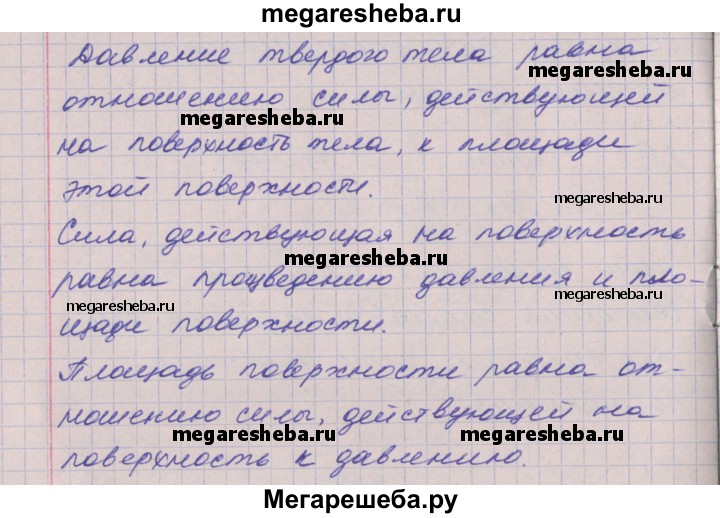 megaresheba.ru
Давление твердого тела равна
megaresheba.ru
отношению силы, действующей
megaresheba.ru
на поверхность тела, к площади
этой поверхности.
megaresheba.ru
Сила, действующая на поверхность
megaresheba.ru
равна произведению давления и пло-
megaresheba.ru
megaresheba.ru
щади поверхности.
Площадь поверхности равна от-
megaresheba.ru
ношению силы, действующей на
megaresheba.ru
megaresheba.ru
поверхность к давлению.
Мегарешеба.ру